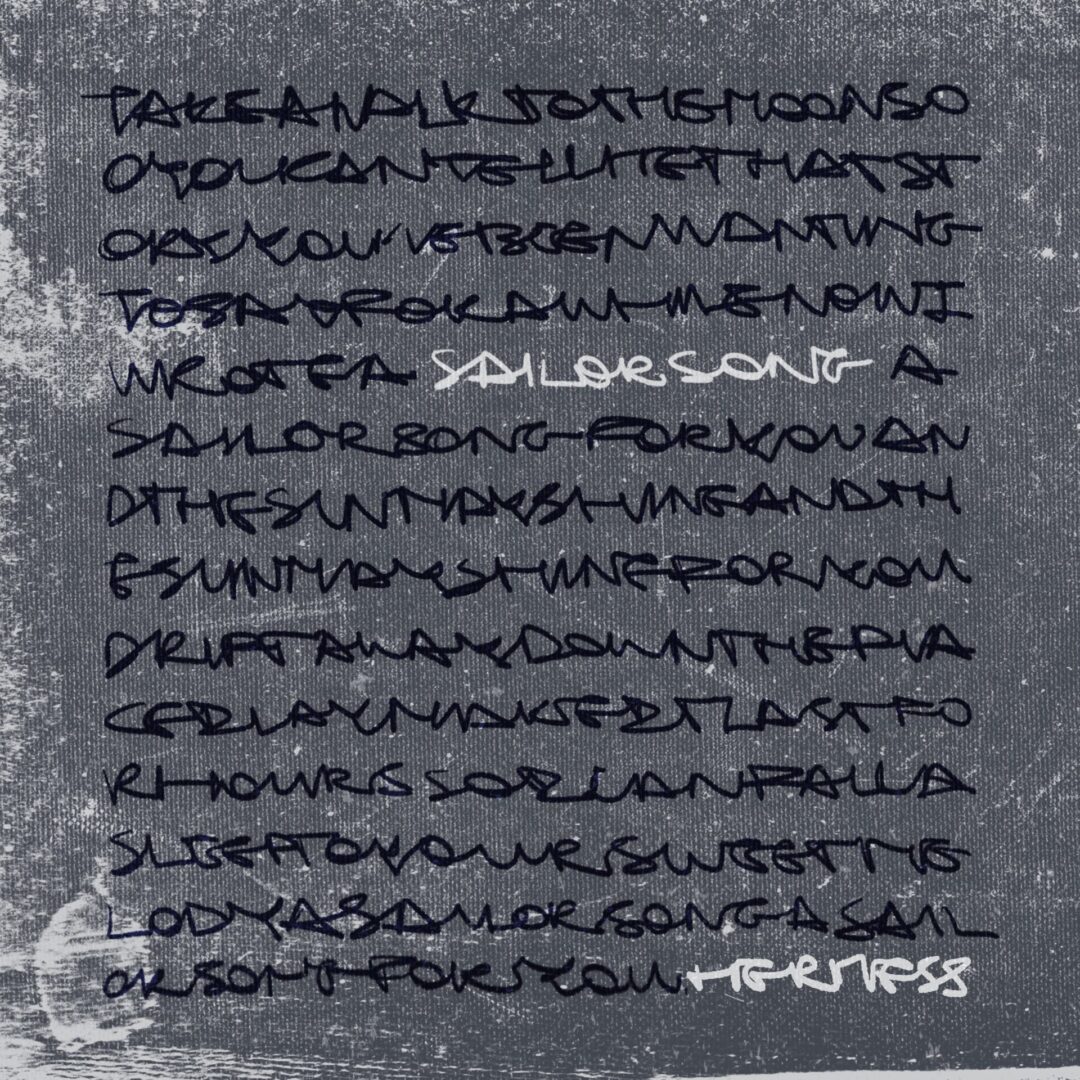 TAKEAWALKTOTHEMOONSO
OYOUCANTELLMETHATST
ORYYOU'VEBEENWANTING
TOSAYFORAWHILENOWI
WROTEA SAILORSONG A
SAILORSONGFORYOUAN
DTHESUNMAYSHINEANDTH
ESUNMAYSHINEFORYOU
DRIFTAWAYDOWNTHE
MAKEITLASTFO
RHOURS SOICANFALLA
SLEEPTOYOURSWEETME
LODYASAILORSONGASAIL
ORSONGFORYOU. HERMESS